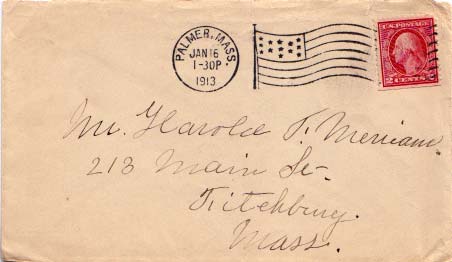 PALMER, MASS.
JAN 16
1-30P
1913
U.S. POSTAGE
2 CENTS 2
Mr. Harold F. Merriam.
213 Main St.
Fitchburg.
Mass.